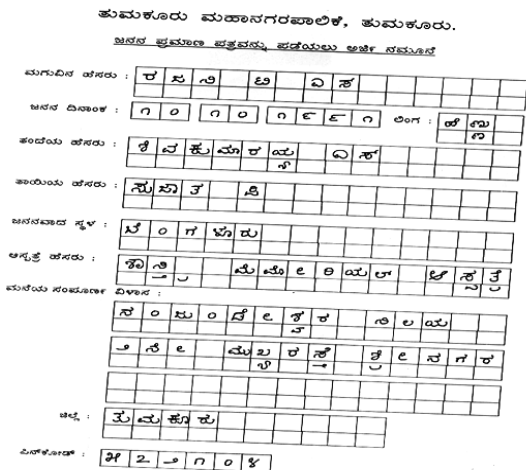 ತುಮಕೂರು ಮಹಾನಗರಪಾಲಿಕೆ, ತುಮಕೂರು.
ಜನನ ಪ್ರಮಾಣ ಪತ್ರವನ್ನು ಪಡೆಯಲು ಅರ್ಜಿ ನಮೂನೆ
ಮಗುವಿನ ಹೆಸರು : ರಜನಿ ಎಸ
ಜನನ ದಿನಾಂಕ : ೧೦ ೧೦ ೧೯೯೧ ಲಿಂಗ : ಹೆಣ್ಣು
ತಂದೆಯ ಹೆಸರು : ಶಿವಕುಮಾರಯ್ಯ ಎಸ್
ತಾಯಿಯ ಹೆಸರು : ಸುಜಾತ ಪಿ
ಜನನವಾದ ಸ್ಥಳ : ಬೆಂಗಳೂರು
ಆಸ್ಪತ್ರೆ ಹೆಸರು : ಶಾಸ್ತ್ರಿ ಮೆಮೋರಿಯಲ್ ಆಸ್ಪತ್ರೆ
ಮನೆಯ ಸಂಪೂರ್ಣ ವಿಳಾಸ :
ನಂಜುಂಡೇಶ್ವರ ನಿಲಯ
೨ನೇ ಮುಖ್ಯರಸ್ತೆ ಶ್ರೀನಗರ
ಜಿಲ್ಲೆ : ತುಮಕೂರು
ಪಿನ್‌ಕೋಡ್ : ೫೭೨೧೦೪